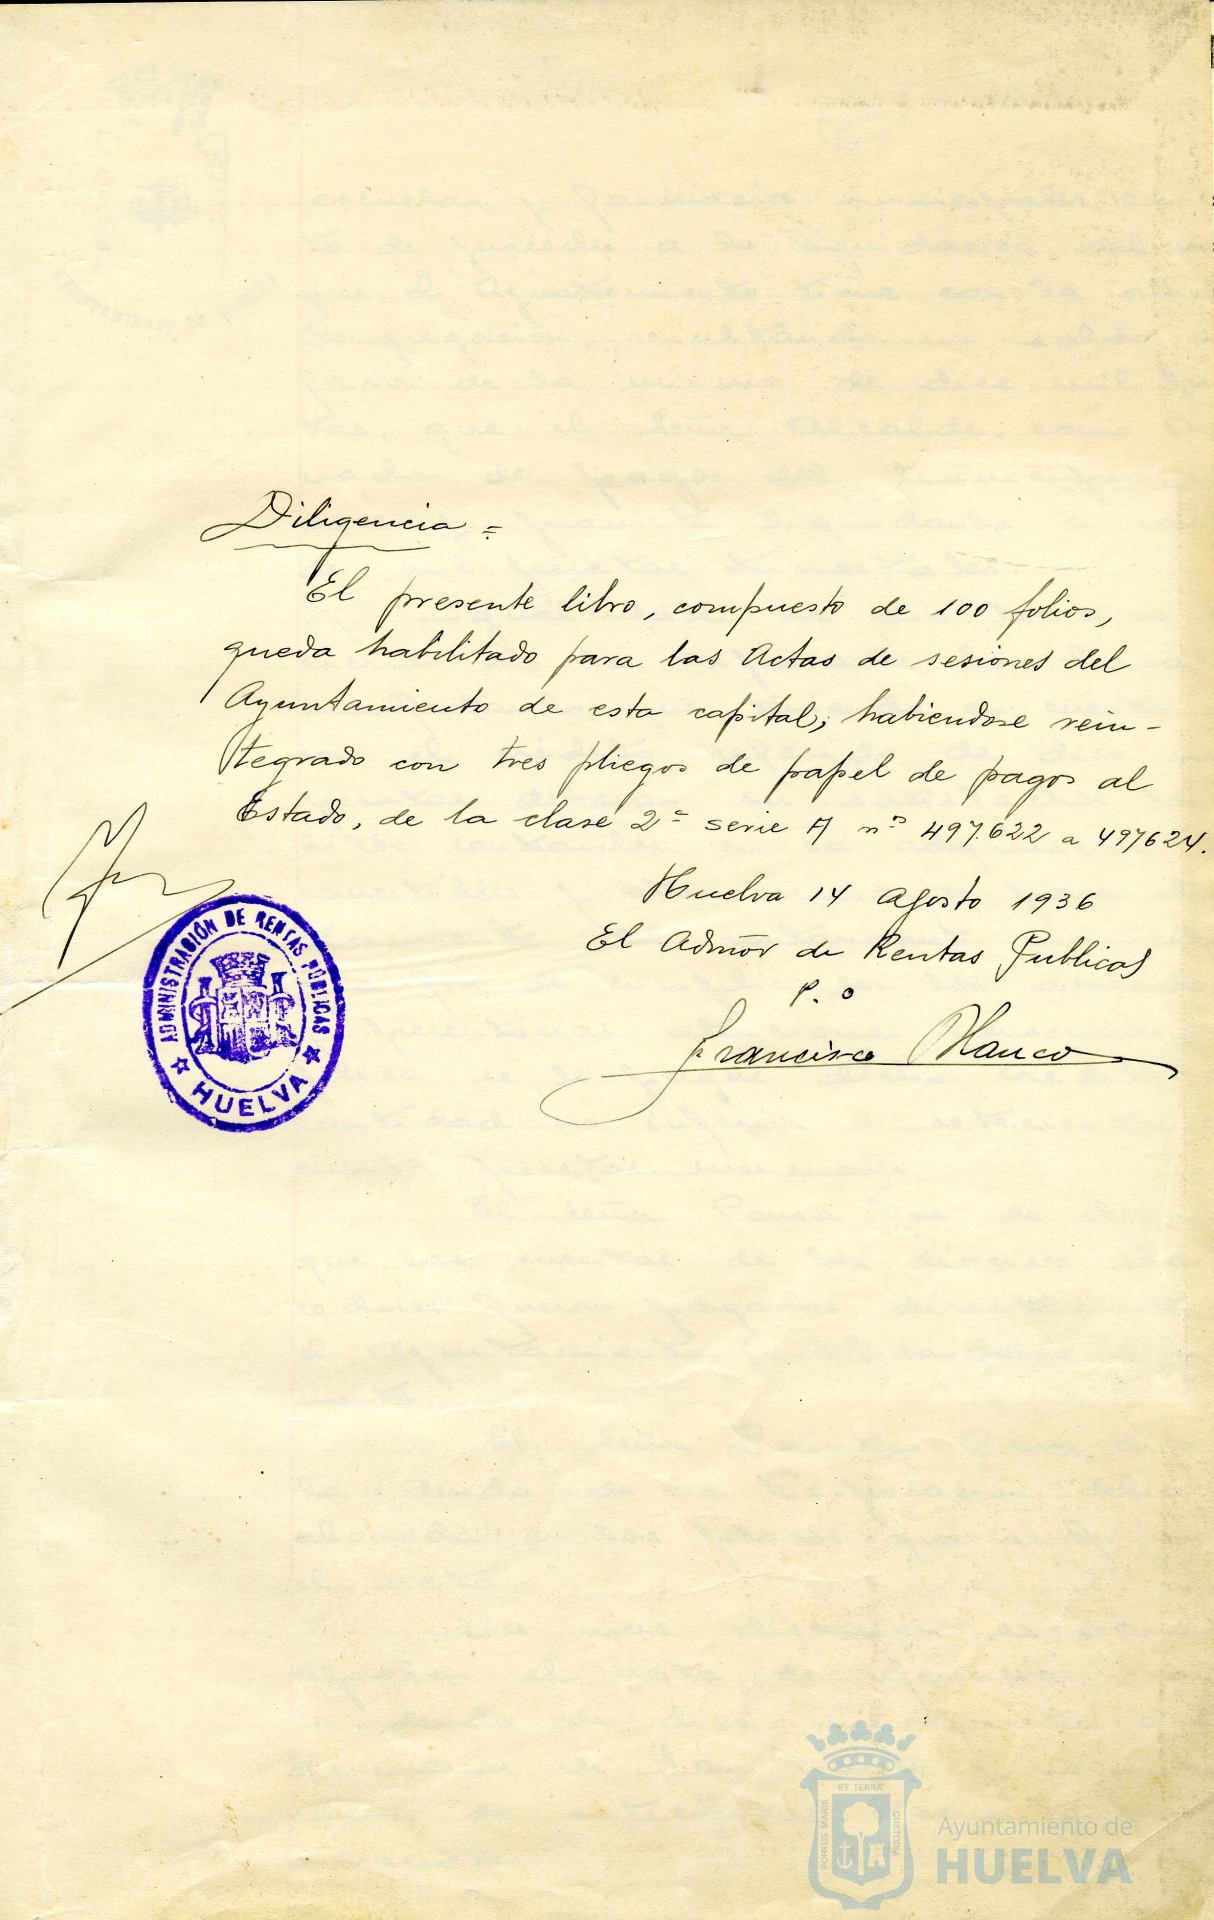 Diligencia =
El presente libro, compuesto de 100 folios,
queda habilitado para las Actas de sesiones del
Ayuntamiento de esta capital, habiendose rein-
tegrado con tres pliegos de papel de pagos al
Estado, de la clase 2ª serie A nº 497.622 a 497624.
Huelva 14 Agosto 1936
El Admõr de Rentas Publicas
P. O
Francisco Blanco
ADMINISTRACIÓN DE RENTAS PÚBLICAS
HUELVA
ET TERRÆ
PORTUS MARIS
CUSTODIA
Ayuntamiento de
HUELVA